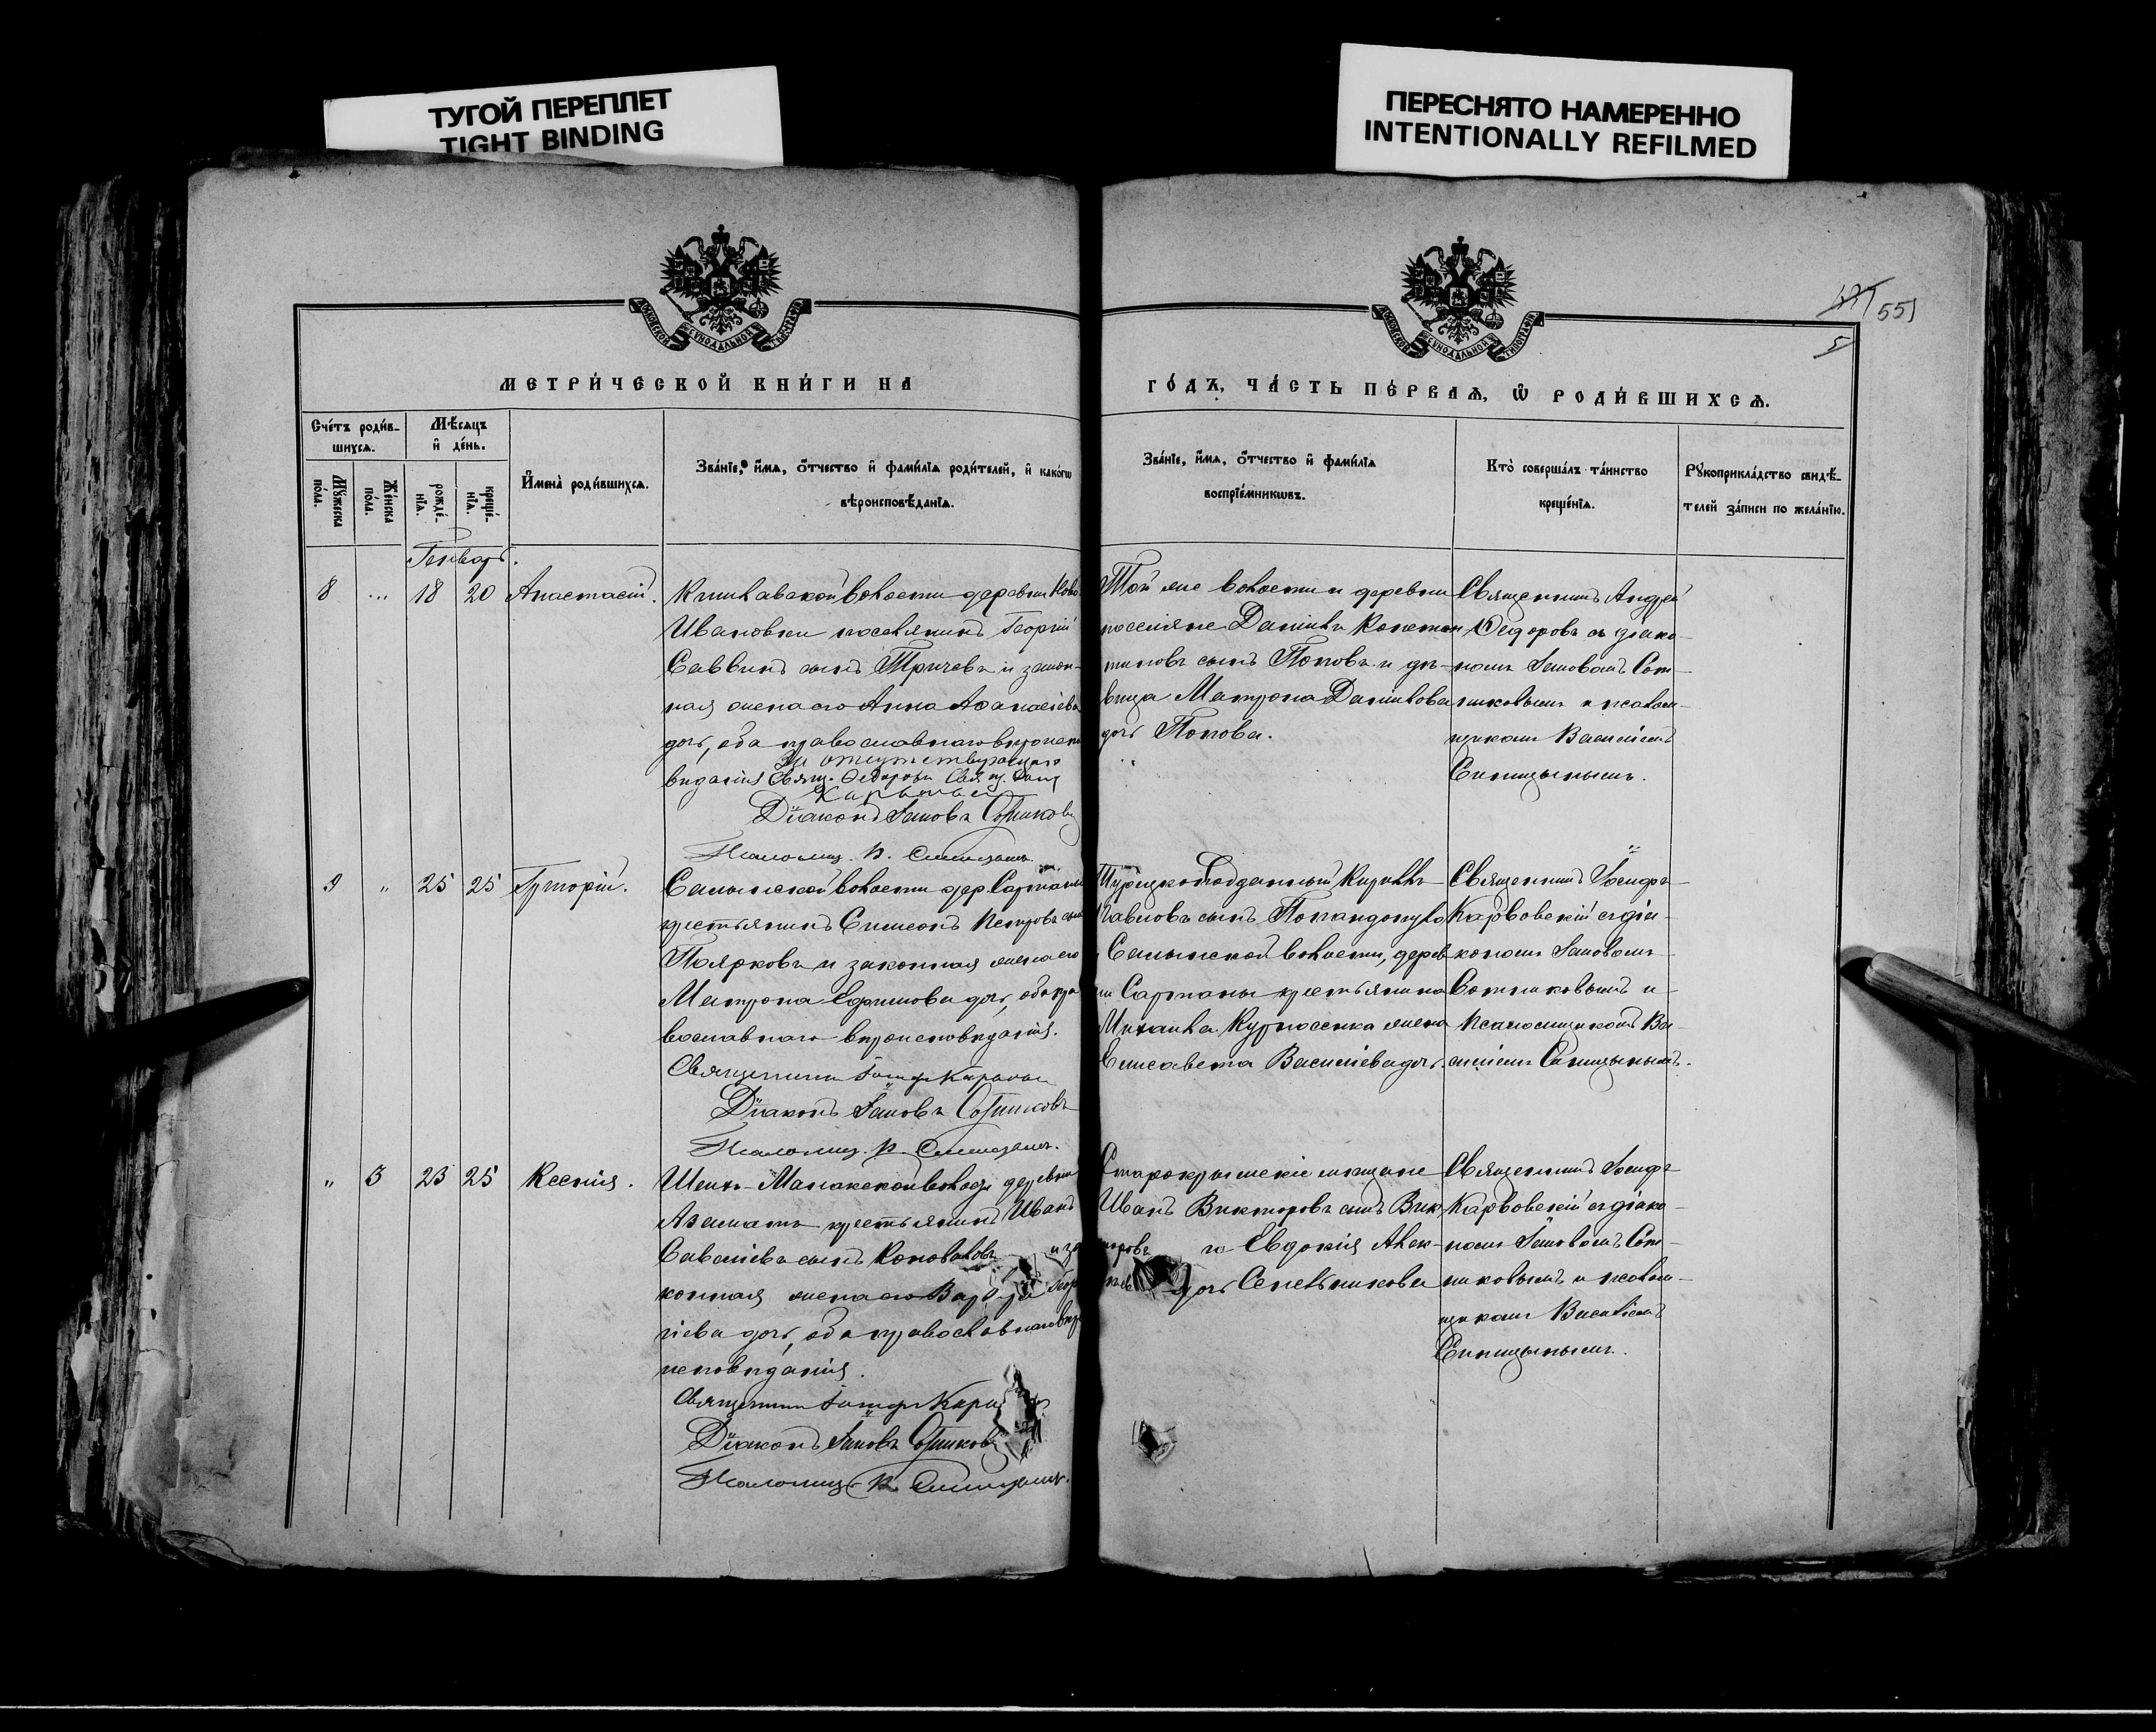 ТУГОЙ ПЕРЕПЛЕТ
TIGHT BINDING
ПЕРЕСНЯТО НАМЕРЕННО
INTENTIONALLY REFILMED
551
5
МЕТРИ́ЧЕСКОЙ КНИ́ГИ НА
ГО́ДЪ, ЧА́СТЬ ПЕ́РВАѦ, Ѡ РОДИ́ВШИХСѦ.
Сче́тъ роди́в-
шихсѧ.
Мѣ́сѧцъ
и҆ де́нь.
Мꙋ́жеска
по́ла.
Же́нска
по́ла.
рожде́-
нїѧ.
креще́-
нїѧ.
И҆мена̀ роди́вшихсѧ.
Зва́нїе, и҆́мѧ, ѻ҆́тчество и҆ фами́лїѧ роди́телей, и҆ како́гѡ
вѣроисповѣ́данїѧ.
Зва́нїе, и҆́мѧ, ѻ҆́тчество и҆ фами́лїѧ
воспрїе́мникѡвъ.
Кто̀ соверша́лъ та́инство
креще́нїѧ.
Рꙋкоприкла́дство свидѣ́-
телей за́писи по жела́нїю.
Генварь.
8 ... 18 20 Анастасій.
Кишлавской волости деревни Ново
Ивановки поселянинъ Георгій
Саввинъ сынъ Тричевъ и закон-
ная жена его Анна Аѳанасіева
дочь, оба православнаго вѣроиспо
За отсутствующаго
вѣданія Свящ. Ѳедорова Свящ.
Діаконъ Іаковъ Сотниковъ
Псаломщ. В. Синицынъ.
Той же волости и деревни
поселяне Даніилъ Констан
тиновъ сынъ Поповъ и дѣ-
вица Матрона Даніилова
дочь Попова.
Священникъ Андрей
Ѳедоровъ съ діако-
номъ Іаковомъ Сот-
никовымъ и псалом-
щикомъ Василіемъ
Синицынымъ.
9 " 25 25 Григорій.
Салынской волости дер. Сартаны
крестьянинъ Симеонъ Петровъ сынъ
Поярковъ и законная жена его
Матрона Ефимова дочь, оба пра
вославнаго вѣроисповѣданія.
Священникъ Іосифъ
Діаконъ Іаковъ Сотниковъ
Псаломщ. В. Синицынъ.
Турецкоподданный Кириллъ
Павловъ сынъ Попандопуло
Салынской волости, дерев
ни Сартаны крестьянина
Михаила Курносенка жена
Елисавета Василіева дочь.
Священникъ Іосифъ
Карвовскій съ діа-
кономъ Іаковомъ
Сотниковымъ и
псаломщикомъ Ва-
силіемъ Синицынымъ.
" 3 23 25 Ксенія.
Шейхъ-Манакской волости деревни
Азаматъ крестьянинъ Иванъ
Савеліевъ сынъ Коноваловъ и за
конная жена его Варвара Геор
гіева дочь, оба православнаго вѣро
исповѣданія.
Священникъ Іосифъ
Діаконъ Іаковъ Сотниковъ
Псаломщ. В. Синицынъ.
Старокрымскіе мѣщане
Иванъ Викторовъ сынъ Вик
торовъ и Евдокія Алек-
дочь Сенельникова
Священникъ Іосифъ
Карвовскій съ діако-
номъ Іаковомъ Сот-
никовымъ и псалом-
щикомъ Василіемъ
Синицынымъ.